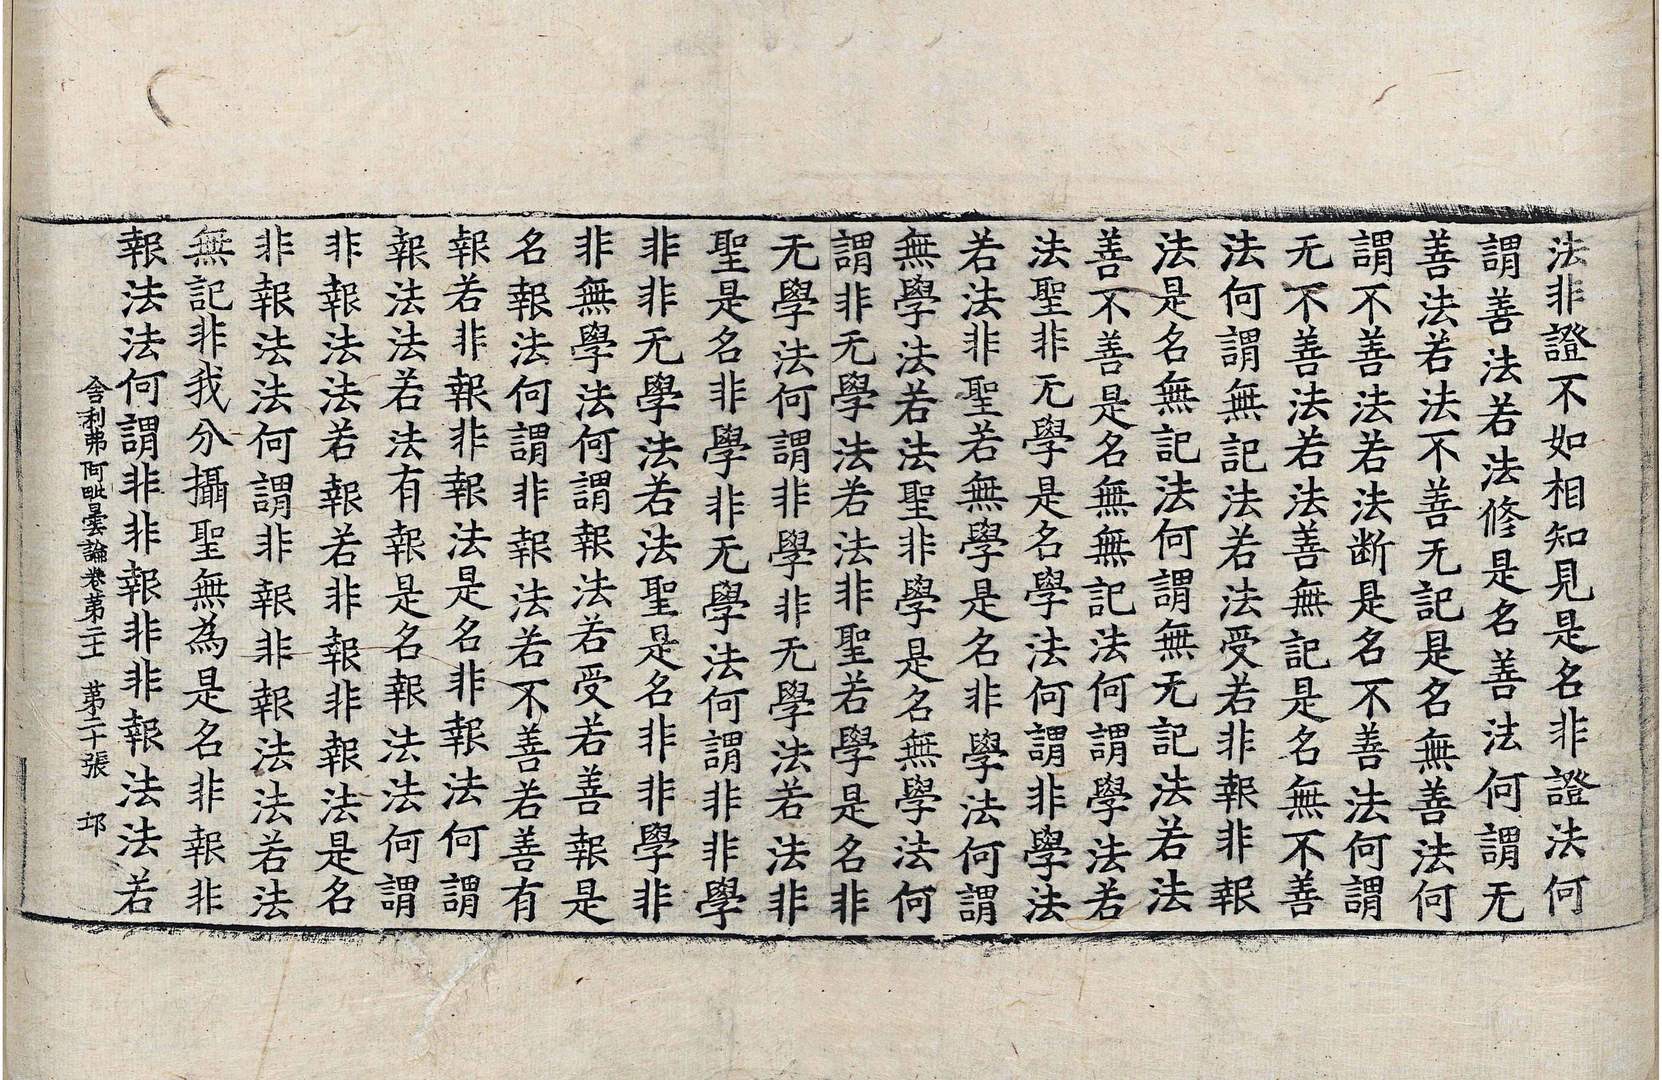 法非證不如相知見是名非證法何
謂善法若法修是名善法何謂无
善法若法不善无記是名無善法何
謂不善法若法断是名不善法何謂
无不善法若法善無記是名無不善
法何謂無記法若法受若非報非報
法是名無記法何謂無无記法若法
善不善是名無無記法何謂學法若
法聖非无學是名學法何謂非學法
若法非聖若無學是名非學法何謂
無學法若法聖非學是名無學法何
謂非无學法若法非聖若學是名非
无學法何謂非學非无學法若法非
聖是名非學非无學法何謂非非學
非非无學法若法聖是名非非學非
非無學法何謂報法若受若善報是
名報法何謂非報法若不善若善有
報若非報非報法是名非報法何謂
報法法若法有報是名報法法何謂
非報法法若報若非報非報法是名
非報法法何謂非報非報法法若法
無記非我分攝聖無為是名非報非
報法法何謂非非報非非報法法若
舍利弗阿毗曇論卷第二十二 第二十張 邙